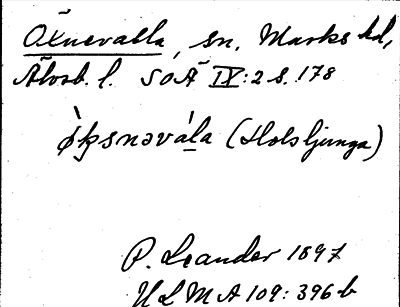 Öxnevalla, sn. Marks hd,
Älvsb. l. SOÄ IX:2 s. 178
ø̀ksnəvála (Holsljunga)
P. Leander 1897
ULMA 109: 396 b